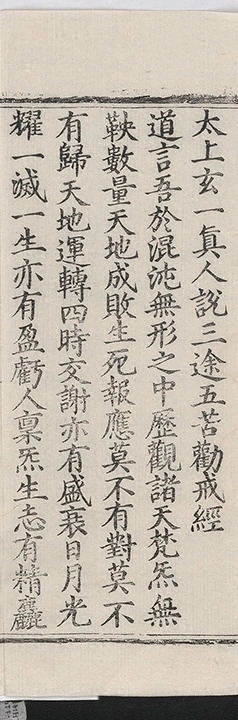 太上玄一真人說三途五苦勸戒經
道言吾於混沌無形之中歷觀諸天梵炁無
鞅數量天地成敗生死報應莫不有對莫不
有歸天地運轉四時交謝亦有盛衰日月光
耀一滅一生亦有盈虧人稟炁生志有精麤